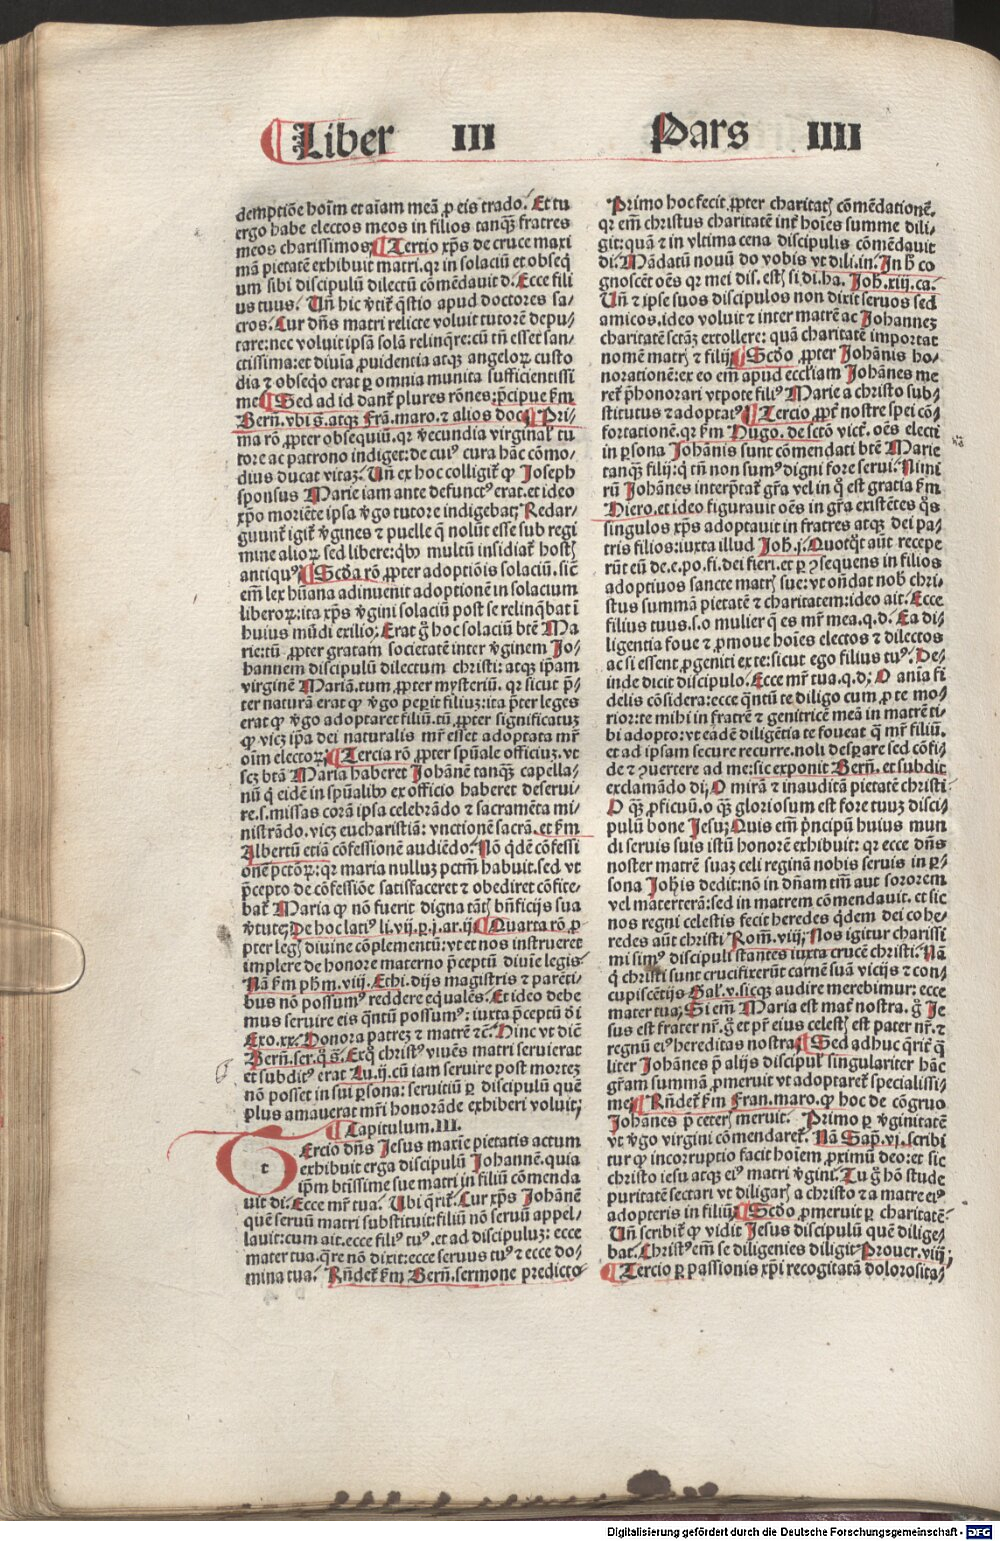 Liber III Pars IIII
demptiōe hoīm et aīam meā ꝓ eis trado. Et tu
ergo habe electos meos in filios tanqꝫ fratres
meos charissimos. Tertio xp̄s de cruce maxi
mā pietatē exhibuit matri. qꝛ in solaciū et obseq
um sibi discipulū dilectū cōmēdauit d. Ecce fili
us tuus. Un̄ hic v̄tit᷑ q̄stio apud doctores sa⸗
cros. Cur dn̄s matri relicte voluit tutorē depu⸗
tare: nec voluit ipsā solā relinq̄re: cū tn̄ esset san⸗
ctissima: et diuīa ꝓuidentia atqꝫ angeloꝝ custo
dia ⁊ obseq̄o erat ꝑ omnia munita sufficientissi
me. Sed ad id dant᷑ plures rōnes: p̄cipue ẜm
Bern̄. vbi s̄. atqꝫ Frā. maro. ⁊ alios doc. Pri⸗
ma rō ꝓpter obsequiū. qꝛ v̄ecundia virginal᷑ tu
tore ac patrono indiget: de cuiꝰ cura hāc cōmo⸗
dius ducat vitaꝫ. Un̄ ex hoc colligit᷑ ꝙ Joseph
sponsus Marie iam ante defunctꝰ erat. et ideo
xp̄o moriēte ipsa v̄go tutore indigebat. Redar⸗
guunt᷑ igit᷑ v̄gines ⁊ puelle q̄ nolūt esse sub regi
mine alioꝝ sed libere: qͥbꝰ multū insidiat᷑ hostꝭ
antiquꝰ. Scd̄a rō ꝓpter adoptiōis solaciū. sic̄
em̄ lex hūana adinuenit adoptionē in solacium
liberoꝝ: ita xp̄s v̄gini solaciū post se relinq̄bat ī
huius mūdi exilio. Erat g̊ hoc solaciū btē Ma
rie: tū ꝓpter gratam societatē inter v̄ginem Jo⸗
hannem discipulū dilectum christi: atqꝫ ip̄am
virginē Mariā. tum ꝓpter mysteriū. qꝛ sicut p̄⸗
ter naturā erat ꝙ v̄go peꝑit filiuꝫ: ita p̄ter leges
erat ꝙ v̄go adoptaret filiū. tū ꝓpter significatuꝫ
ꝙ viꝫ ip̄a dei naturalis mr̄ esset adoptata mr̄
oīm electoꝝ. Tercia rō ꝓpter spūale officiuꝫ. vt
seꝫ btā Maria haberet Johānē tanqꝫ capella⸗
nū q̄ eidē in spūalibꝰ ex officio haberet deserui⸗
re. s. missas corā ipsa celebrādo ⁊ sacramēta mi⸗
nistrādo. viꝫ eucharistiā: vnctionē sacrā. et ẜm
Albertū etiā cōfessionē audiēdo. Nō q̄dē cōfessi
onē pctōꝝ: qꝛ maria nulluꝫ pctm̄ habuit. sed vt
p̄cepto de cōfessiōe satisfaceret ⁊ obediret cōfite⸗
bat᷑ Maria ꝙ nō fuerit digna tātꝭ bn̄ficijs sua
v̄tute. De hoc latiꝰ li. vij. p. j. ar. ij. Quarta rō ꝓ⸗
pter legꝭ diuine cōplementū: vt et nos instrueret
implere de honore materno p̄ceptū diuīe legis.
Nā ẜm ph̄m. viij. Ethi. dijs magistris ⁊ parēti⸗
bus nō possumꝰ reddere eq̄ualēs. Et ideo debe
mus seruire eis qn̄tū possumꝰ: iuxta p̄ceptū dei
Exo. xx. Honora patreꝫ ⁊ matrē ⁊c̄. Hinc vt diē
Bern̄. ser. q̊ s̄. Exq̊ christꝰ viuēs matri seruierat
et subditꝰ erat Lu. ij. cū iam seruire post morteꝫ
nō posset in sui ꝑsona: seruitiū ꝑ discipulū quē
plus amauerat mr̄i honorāde exhiberi voluit.
Capitulum. III.
Tercio dn̄s Jesus maxīe pietatis actum
exhibuit erga discipulū Johannē. quia
ip̄m btissime sue matri in filiū cōmenda
uit di. Ecce mr̄ tua. Ubi q̄rit᷑. Cur xp̄s Johānē
quē seruū matri substituit: filiū nō seruū appel⸗
lauit: cum ait. ecce filiꝰ tuꝰ. et ad discipuluꝫ: ecce
mater tua. q̄re nō dixit: ecce seruus tuꝰ ⁊ ecce do⸗
mina tua. Rn̄det᷑ ẜm Bern̄. sermone predicto.
Primo hoc fecit ꝓpter charitatꝭ cōmēdationē.
qꝛ em̄ christus charitatē int᷑ hoīes summe dili⸗
git: quā ⁊ in vltima cena discipulis cōmēdauit
di. Mādatū nouū do vobis vt dili. in. In h̄ co
gnoscēt oēs qꝛ mei dis. estꝭ si di. ha. Joh̄. xiij. ca.
Un̄ ⁊ ipse suos discipulos non dixit seruos sed
amicos. ideo voluit ⁊ inter matrē ac Johanneꝫ
charitatē sctāꝫ extollere: quā charitatē importat
nomē matrꝭ ⁊ filij. Scd̄o ꝓpter Johānis ho⸗
norationē: ex eo em̄ apud eccl̄iam Johānes me
ret᷑ p̄honorari vtpote filiꝰ Marie a christo sub⸗
stitutus ⁊ adoptatꝰ. Tercio ꝓpt᷑ nostre spei cō⸗
fortationē. qꝛ ẜm Hugo. de sctō vict᷑. oēs electi
in ꝑsona Johānis sunt cōmendati btē Marie
tanqꝫ filij: q̄ tn̄ non sumꝰ digni fore serui. Nimi
rū Johānes interp̄tat᷑ gr̄a vel in q̊ est gratia ẜm
Hiero. et ideo figurauit oēs in gr̄a existētes q̊s
singulos xp̄s adoptauit in fratres atqꝫ dei pa⸗
tris filios: iuxta illud Joh̄. j. Quotq̊t aūt recepe
rūt eū de. e. po. fi. dei fieri. et ꝑ ꝯsequens in filios
adoptiuos sancte matrꝭ sue: vt ondat nob̄ chri⸗
stus summā pietatē ⁊ charitatem: ideo ait. Ecce
filius tuus. s. o mulier q̄ es mr̄ mea. q. d. Ea di⸗
ligentia foue ⁊ ꝓmoue hoīes electos ⁊ dilectos
ac si essent ꝓgeniti ex te: sicut ego filius tuꝰ. De⸗
inde dicit discipulo. Ecce mr̄ tua. q. d. O anīa fi
delis cōsidera: ecce qn̄tū te diligo cum ꝓ te mo⸗
rior: te mihi in fratrē ⁊ genitricē meā in matrē ti⸗
bi adopto: vt eadē diligētia te foueat q̄ mr̄ filiū.
et ad ipsam secure recurre. noli desꝑare sed cōfi⸗
de ⁊ ꝯuertere ad me: sic exponit Bern̄. et subdit
exclamādo di. O mirā ⁊ inauditā pietatē christi
O qꝫ ꝓficuū. o qꝫ gloriosum est fore tuuꝫ disci⸗
pulū bone Jesu. Quis em̄ p̄ncipū huius mun
di seruis suis istū honorē exhibuit: qꝛ ecce dn̄s
noster matrē suaꝫ celi reginā nobis seruis in ꝑ⸗
sona Joh̄is dedit: nō in dn̄am tm̄ aut sororem
vel materterā: sed in matrem cōmendauit. et sic
nos regni celestis fecit heredes q̄dem dei cohe⸗
redes aūt christi Rom̄. viij. Nos igitur charissi
mi simꝰ discipuli stantes iuxta crucē christi. Nā
q̄ christi sunt crucifixerūt carnē suā vicijs ⁊ con⸗
cupiscētijs Gal᷑. v. sicqꝫ audire merebimur: ecce
mater tua. Si em̄ Maria est mat᷑ nostra. g̊ Je
sus est frater nr̄. g̊ et pr̄ eius celestꝭ est pater nr̄. ⁊
regnū eiꝰ hereditas nostra. Sed adhuc q̄rit᷑ q̄
liter Johānes p̄ alijs discipul᷑ singulariter hāc
gr̄am summā ꝓmeruit vt adoptaret᷑ specialissi⸗
me. Rn̄det᷑ ẜm Fran. maro. ꝙ hoc de cōgruo
Johānes p̄ ceterꝭ meruit. Primo ꝑ v̄ginitatē
vt v̄go virgini cōmendaret᷑. Nā Sap̄. vj. scribi
tur ꝙ incorruptio facit hoīem ꝓximū deo: et sic
christo iesu atqꝫ eiꝰ matri v̄gini. Tu g̊ hō stude
puritatē sectari vt diligarꝭ a christo ⁊ a matre eiꝰ
adopteris in filiū. Scd̄o ꝓmeruit ꝑ charitatē.
Un̄ scribit᷑ ꝙ vidit Jesus discipulū quē dilige⸗
bat. Christꝰ em̄ se diligenies diligit Prouer. viij.
Tercio ꝑ passionis xp̄i recogitatā dolorosita⸗
Digitalisierung gefördert durch die Deutsche Forschungsgemeinschaft - DFG